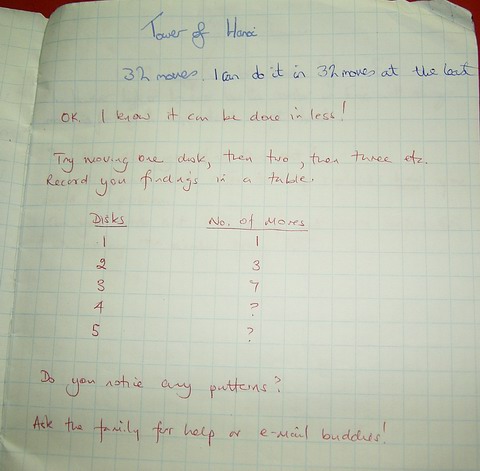 Tower of Hanoi
32 moves. I can do it in 32 moves at the least
OK. I know it can be done in less!
Try moving one disk, then two, then three etc.
Record you findings in a table.
Disks No. of Moves
1 1
2 3
3 7
4 ?
5 ?
Do you notice any patterns?
Ask the family for help or e-mail buddies!